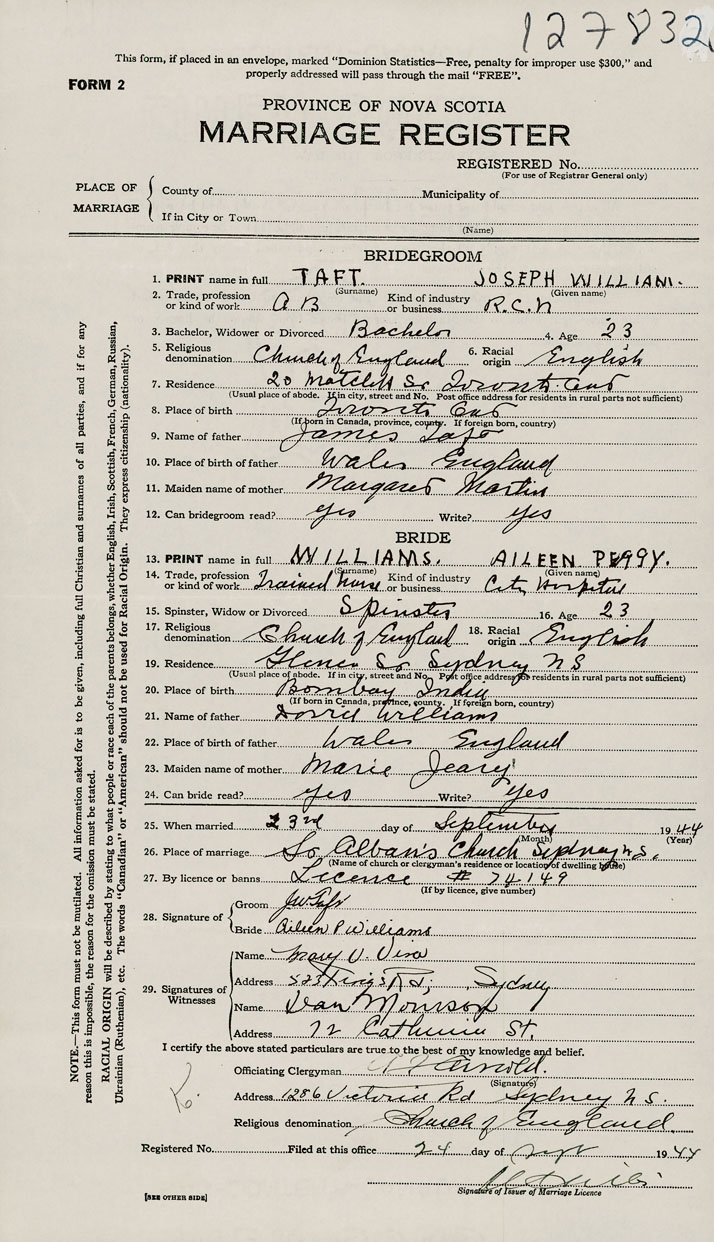 127832
This form, if placed in an envelope, marked "Dominion Statistics—Free, penalty for improper use $300," and
properly addressed will pass through the mail "FREE".
FORM 2
PROVINCE OF NOVA SCOTIA
MARRIAGE REGISTER
REGISTERED No.
(For use of Registrar General only)
PLACE OF MARRIAGE
County of Municipality of
If in City or Town
(Name)
BRIDEGROOM
1. PRINT name in full TAFT. JOSEPH WILLIAM.
(Surname) (Given name)
2. Trade, profession or kind of work A B Kind of industry or business R.C.N
3. Bachelor, Widower or Divorced Bachelor 4. Age 23
5. Religious denomination Church of England 6. Racial origin English
7. Residence 20 St Toronto Ont
(Usual place of abode. If in city, street and No. Post office address for residents in rural parts not sufficient)
8. Place of birth Toronto Ont
(If born in Canada, province, county. If foreign born, country)
9. Name of father James Taft
10. Place of birth of father Wales England
11. Maiden name of mother Margaret Martin
12. Can bridegroom read? yes Write? yes
BRIDE
13. PRINT name in full WILLIAMS. AILEEN PEGGY.
(Surname) (Given name)
14. Trade, profession or kind of work Trained Nurse Kind of industry or business City Hospital
15. Spinster, Widow or Divorced Spinster 16. Age 23
17. Religious denomination Church of England 18. Racial origin English
19. Residence St Sydney NS
(Usual place of abode. If in city, street and No. Post office address for residents in rural parts not sufficient)
20. Place of birth Bombay India
(If born in Canada, province, county. If foreign born, country)
21. Name of father Williams
22. Place of birth of father Wales England
23. Maiden name of mother Marie Jeary
24. Can bride read? yes Write? yes
25. When married 23rd day of September 1944
(Month) (Year)
26. Place of marriage St Alban's Church Sydney N.S.
(Name of church or clergyman's residence or location of dwelling house)
27. By licence or banns Licence # 74149
(If by licence, give number)
28. Signature of
Groom JW Taft
Bride Aileen P Williams
29. Signatures of Witnesses
Name Mary V.
Address 523 Kings Rd, Sydney
Name Morrison
Address 72 Catherine St.
I certify the above stated particulars are true to the best of my knowledge and belief.
Officiating Clergyman Arnold.
(Signature)
Address 1286 Victoria Rd Sydney N.S.
Religious denomination Church of England
Registered No. Filed at this office 24 day of Sept 1944
Signature of Issuer of Marriage Licence
[SEE OTHER SIDE]
NOTE.—This form must not be mutilated. All information asked for is to be given, including full Christian and surnames of all parties, and if for any
reason this is impossible, the reason for the omission must be stated.
RACIAL ORIGIN will be described by stating to what people or race each of the parents belongs, whether English, Irish, Scottish, French, German, Russian,
Ukrainian (Ruthenian), etc. The words "Canadian" or "American" should not be used for Racial Origin. They express citizenship (nationality).